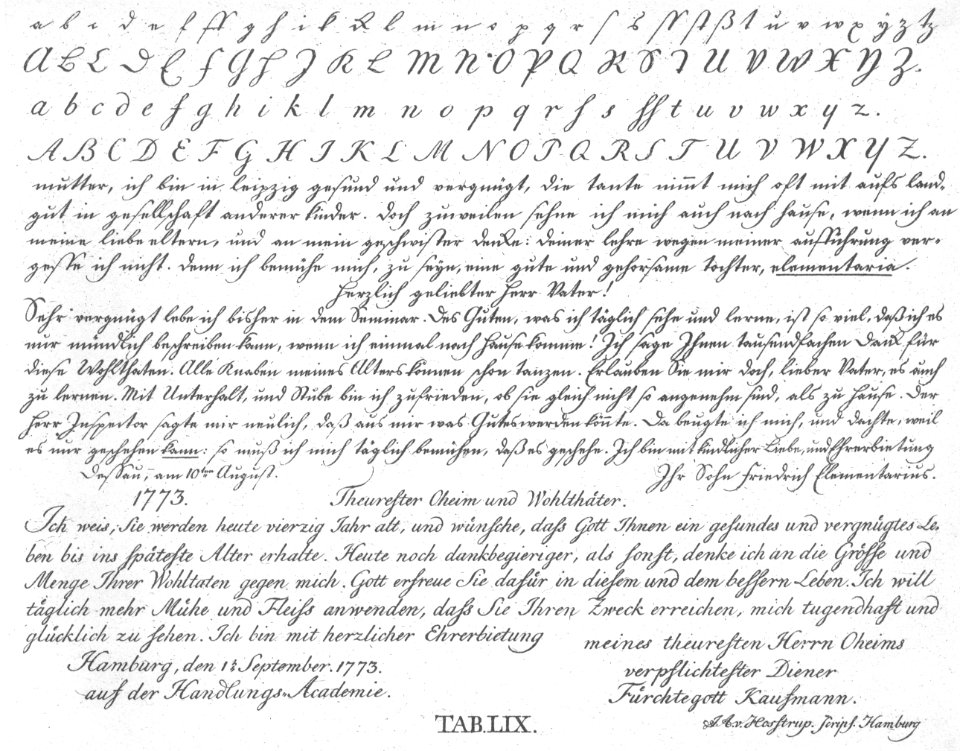 a b c d e f ff g h i k l m n o p q r ſ s ſſ ſt ß t u v w x ÿ z tz
A B C D E F G H J K L M N O P Q R S T U V W X Y Z.
a b c d e f g h i k l m n o p q r ſ s ſſ t u v w x y z.
A B C D E F G H I K L M N O P Q R S T U V W X Y Z.
mutter, ich bin in leipzig geſund und vergnügt, die tante nim̄t mich oft mit aufs land-
gut in geſellſchaft anderer kinder. doch zuweilen ſehne ich mich auch nach hauſe, wenn ich an
meine liebe eltern, und an mein geſchwiſter denke: deiner lehre wegen meiner aufführung ver-
geſſe ich nicht. denn ich bemühe mich, zu ſeyn, eine gute und gehorſame tochter, elementaria.
Herzlich geliebter Herr Vater!
Sehr vergnügt lebe ich bisher in dem Seminar. Des Guten, was ich täglich ſehe und lerne, iſt ſo viel, daß ich es
nur mündlich beſchreiben kann, wenn ich einmal nach Hauſe komme! Ich ſage Ihnen tauſendfachen Dank für
dieſe Wohlthaten. Alle Knaben meines Alters können ſchon tanzen. Erlauben Sie mir doch, lieber Vater, es auch
zu lernen. Mit Unterhalt, und Stube bin ich zufrieden, ob ſie gleich nicht ſo angenehm ſind, als zu Hauſe. Der
Herr Inſpector ſagte mir neulich, daß aus mir was Gutes werden kön̄te. Da beugte ich mich, und dachte, weil
es nur geſchehen kann: ſo muß ich mich täglich bemühen, daß es geſchehe. Ich bin mit kindlicher Liebe, und Ehrerbietung
Deſſau, am 10ten Auguſt. Ihr Sohn Friedrich Elementarius.
1773. Theureſter Oheim und Wohlthäter.
Ich weis, Sie werden heute vierzig Jahr alt, und wünſche, daſs Gott Ihnen ein geſundes und vergnügtes Le-
ben bis ins ſpäteſte Alter erhalte. Heute noch dankbegieriger, als ſonſt, denke ich an die Gröſſe und
Menge Ihrer Wohltaten gegen mich. Gott erfreue Sie dafür in dieſem und dem beſſern Leben. Ich will
täglich mehr Mühe und Fleiſs anwenden, daſs Sie Ihren Zweck erreichen, mich tugendhaft und
glücklich zu ſehen. Ich bin mit herzlicher Ehrerbietung
meines theureſten Herrn Oheims
Hamburg, den September. 1773.
verpflichteſter Diener
auf der Handlungs-Academie.
Fürchtegott Kaufmann.
TAB. LIX.
J. A. v. Hosſtrup. ſcripſ. Hamburg